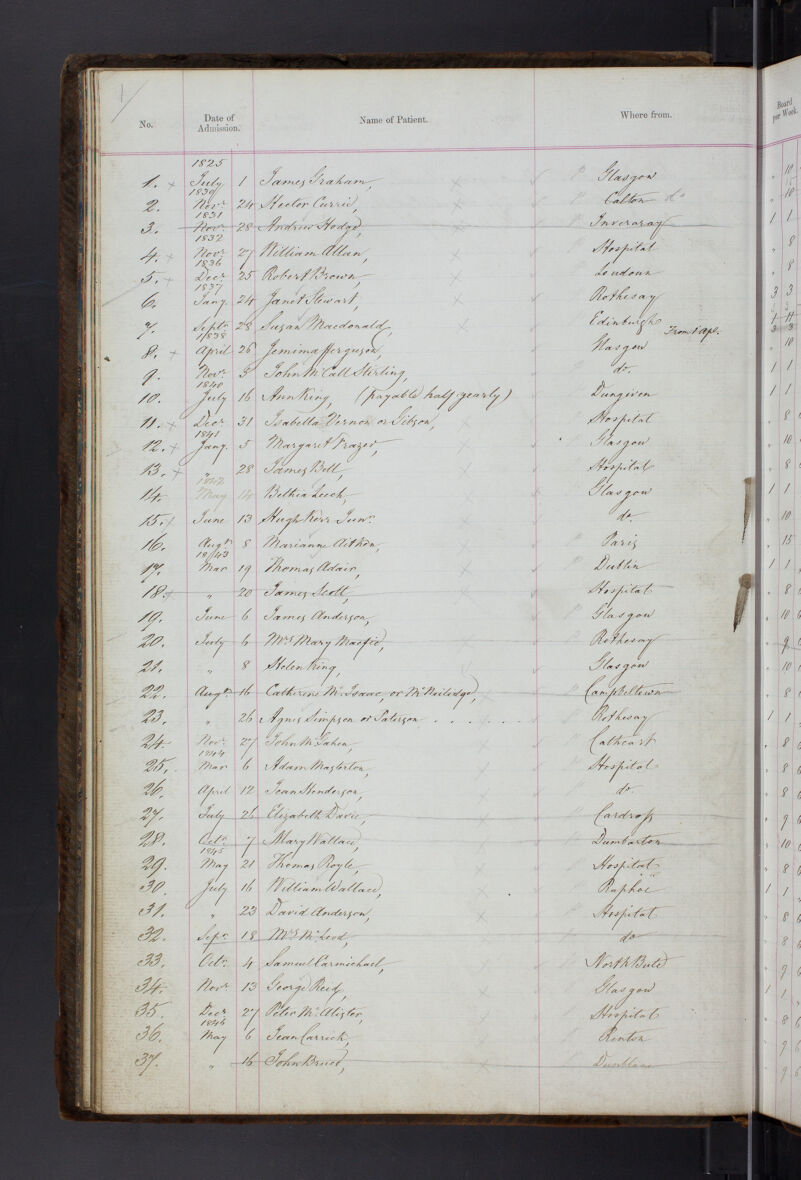 1
No. Date of Admission. Name of Patient. Where from. Board per Week.
1825
1. July 1 James Graham, Glasgow " 10
1830
2. Novr 24 Hector Currie, Calton do " 10
1831
3. Novr 28 Andrew Hodge, Inveraray 1 1
1832
4. Novr 27 William Allan, Hospital " 8
1836
5. Decr 25 Robert Brown, Loudoun " 8
1837
6. Jany. 24 Janet Stewart, Rothesay 3 3
7. Septr 28 Susan Macdonald, Edinburgh From 1 Apl. 3 3
1838
8. April 26 Jemima Ferguson, Glasgow " 10
9. Novr 3 John McCall Stirling, do. 1 1
1840
10. July 16 Ann King, (payable half-yearly) Dungiven 1 1
11. Decr 31 Isabella Vernon or Gibson, Hospital " 8
1841
12. Jany. 5 Margaret Frazer, Glasgow " 10
13. " 28 James Bell, Hospital " 8
1842
14. May 14 Bethia Leech, Glasgow 1 1
15. June 13 Hugh Kerr Junr. do. " 10
16. Augt 8 Marianne Aitken, Paris " 15
1843
17. Mar 19 Thomas Adair, Dublin 1 1
18. " 20 James Scott, Hospital " 8
19. June 6 James Anderson, Glasgow " 10 6
20. July 6 Mrs Mary Macfie, Rothesay " 9 6
21. " 8 Helen King, Glasgow " 10
22. Augt 16 Catherine McIsaac, or Campbeltown " 8
23. " 26 Agnes Simpson or Paterson . . . . . . Rothesay 1 1
24. Novr 27 John McGahen, Cathcart " 8 6
1844
25. Mar 6 Adam Masterton, Hospital " 8 6
26. April 12 Jean Henderson, do. " 8 6
27. July 26 Elizabeth Davie, Cardross " 9 6
28. Octr 7 Mary Wallace, Dumbarton " 10 6
1845
29. May 21 Thomas Royle, Hospital " 8 6
30. July 16 William Wallace, Raphoe 1 1
31. " 23 David Anderson, Hospital " 8 6
32. Sepr 18 Mrs McLeod, do " 8 6
33. Octr 4 Samuel Carmichael, North Bute " 9 6
34. Novr 13 George Reid, Glasgow 1 1
35. Decr 27 Peter McAlister, Hospital " 8 6
1846
36. May 6 Jean Carrick, Renton " 9 6
37. " 16 John Bruce, Dunblane " 9 6